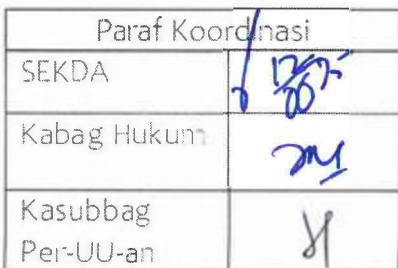 Paraf Koordinasi
SEKDA
Kabag Hukum
Kasubbag
Per-UU-an